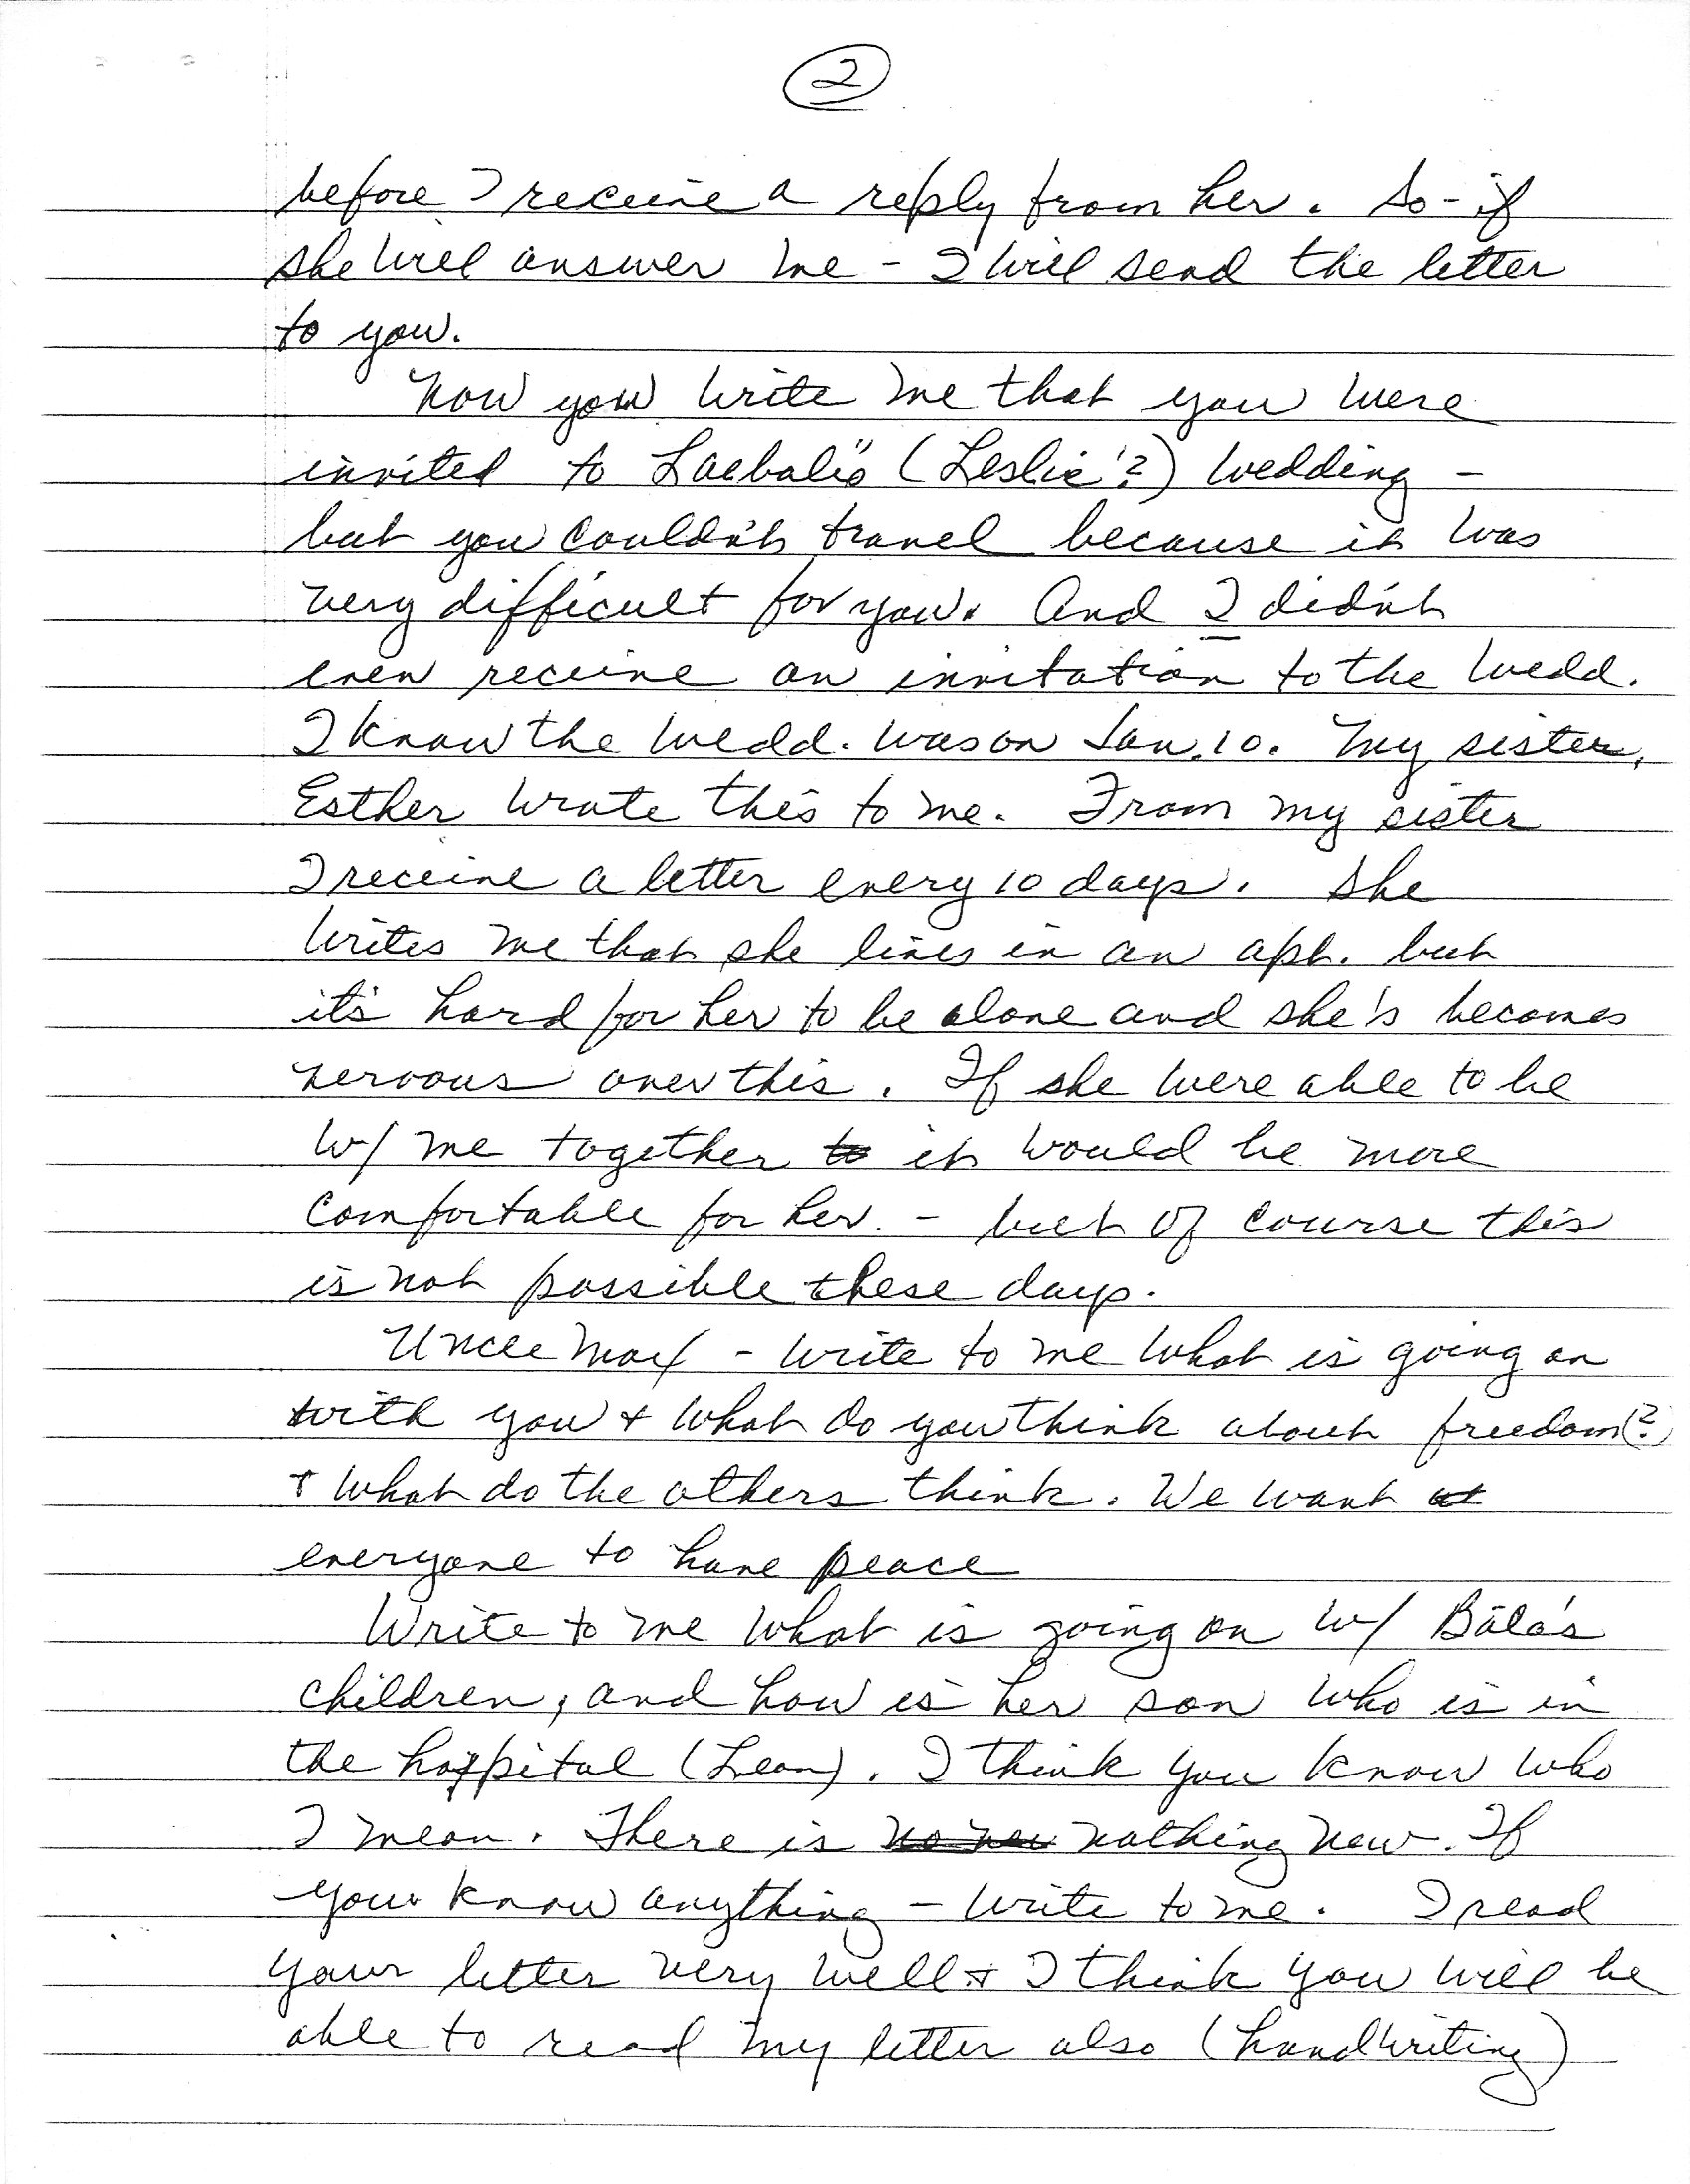 2
before I receive a reply from her. So - if
she will answer me - I will send the letter
to you.
Now you write me that you were
invited to (Leslie'?) wedding -
but you couldn't travel because it was
very difficult for you. And I didn't
even receive an invitation to the wedd.
I know the wedd. was on Jan. 10. My sister,
Esther wrote this to me. From my sister
I receive a letter every 10 days. She
writes me that she lives in an apt. but
it's hard for her to be alone and she's becomes
nervous over this. If she were able to be
w/ me together to it would be more
comfortable for her. - but of course this
is not possible these days.
Uncle Max - write to me what is going on
with you + what do you think about freedom(?)
+ what do the others think. We want
everyone to have peace
Write to me what is going on w/ Băla's
children, and how is her son who is in
the hospital (Leon). I think you know who
I mean. There is no new nothing new. If
you know anything - write to me. I read
your letter very well + I think you will be
able to read my letter also (handwriting)